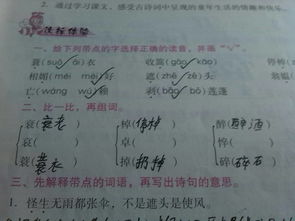 2. 通过学习课文，感受古诗词中呈现的童年生活的情趣和快乐。
一、给下列带点的字选择正确的读音，并画“√”。
蓑( )衣 收篙(gāo kào) 停棹(
相媚(méi mèi)好 遮( )头
亡(wáng wú)赖 剥(bāo bō)莲蓬
二、比一比，再组词。
衰(衰老) 棹(停棹) 醉(醉酒)
衰( ) 卓( ) 悴(
蓑(蓑衣) 掉( ) 碎(碎石)
三、先解释带点的词语，再写出诗句的意思。
1. 怪生无雨都张伞，不是遮头是使风。